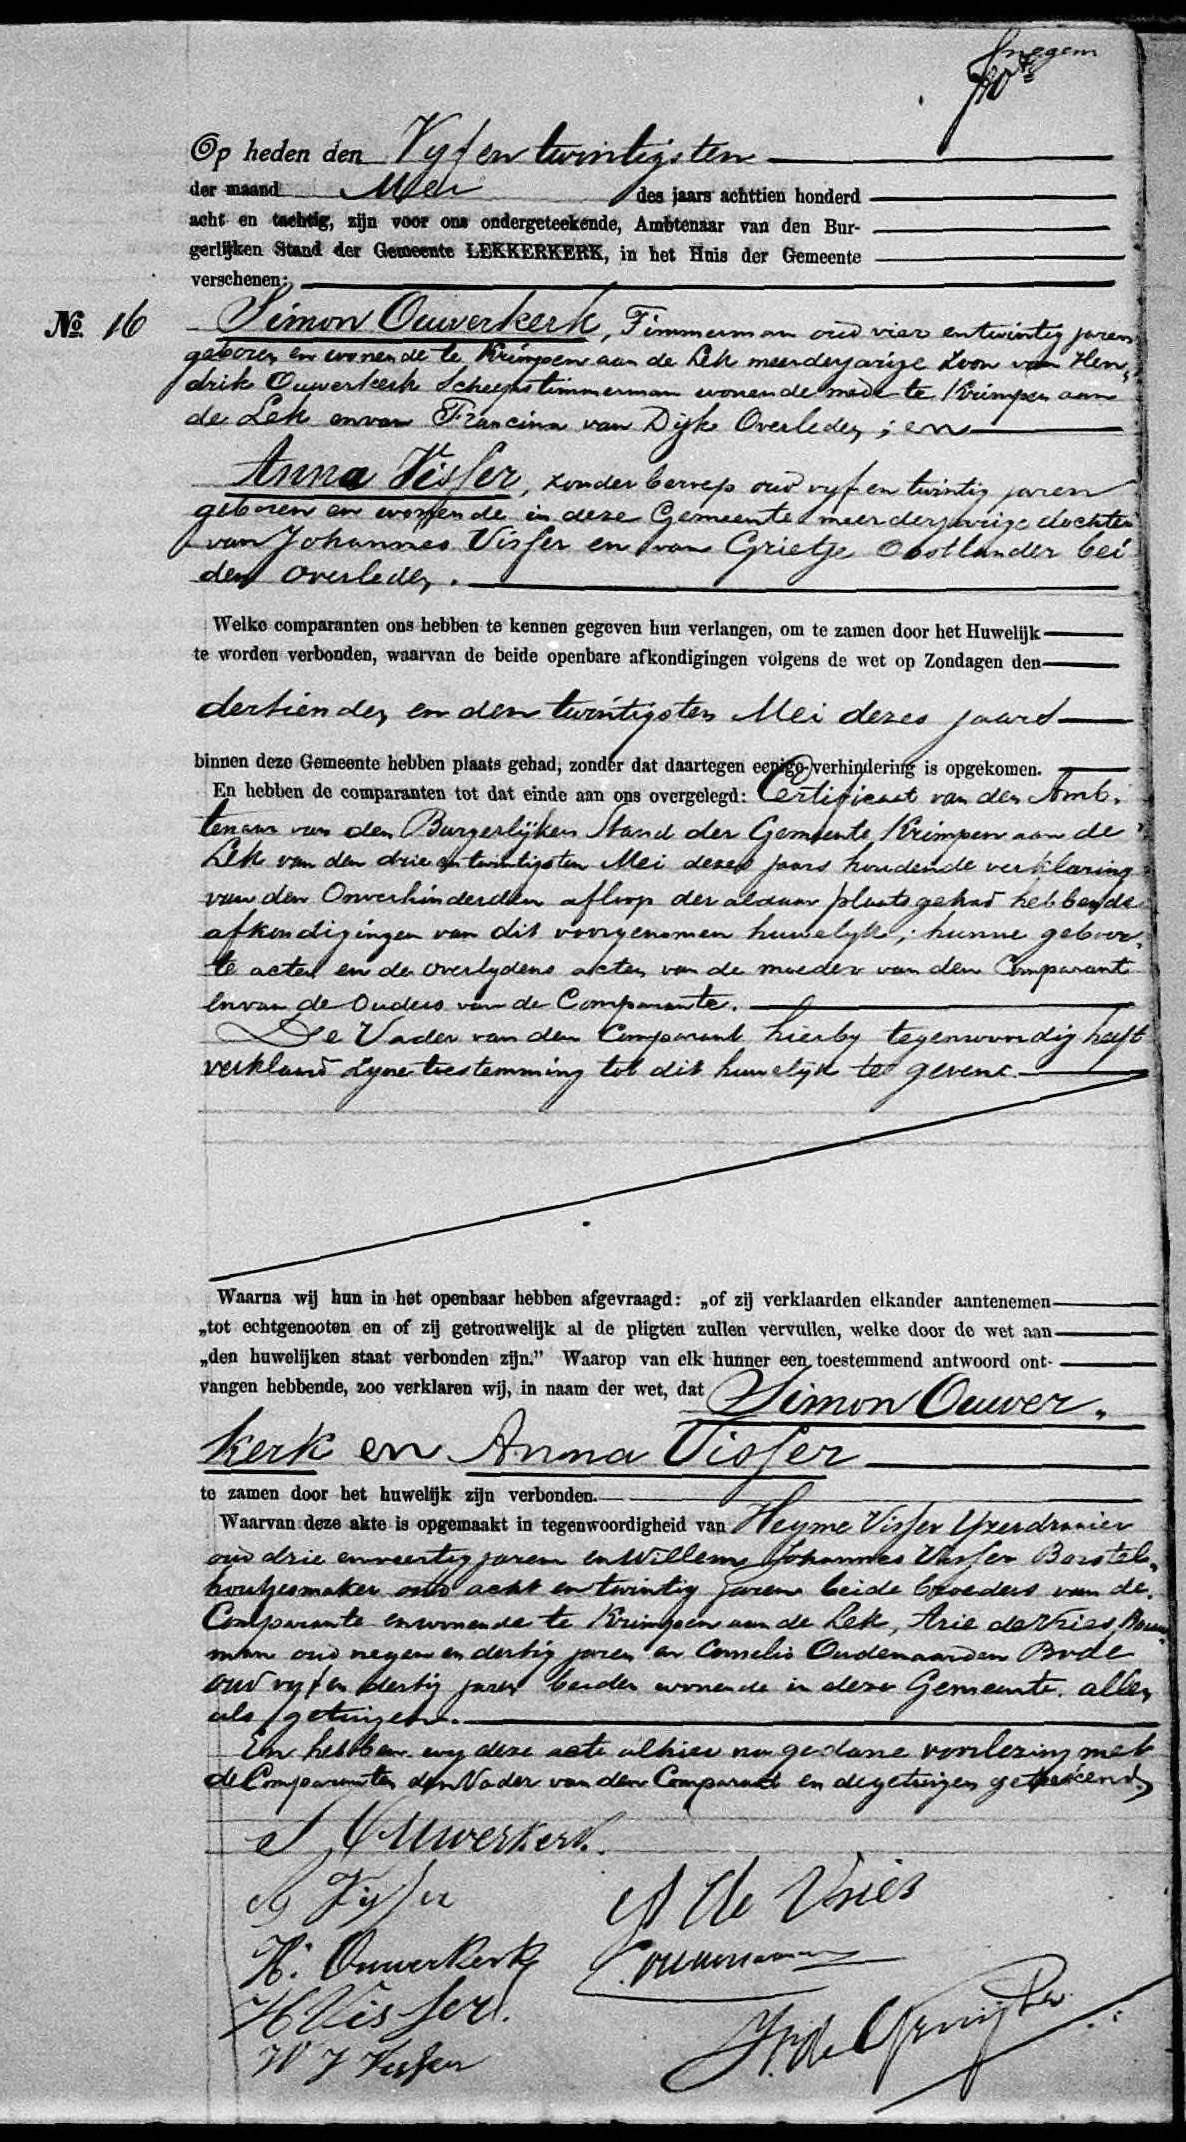 negen
Op heden den Vyf en twintigsten
der maand Mei des jaars achttien honderd
acht en tachtig, zijn voor ons ondergeteekende, Ambtenaar van den Bur-
gerlijken Stand der Gemeente LEKKERKERK, in het Huis der Gemeente
verschenen:
No. 16 Simon Ouwerkerk, Timmerman oud vier en twintig jaren
geboren en wonende te Krimpen aan de Lek meerderjarige Zoon van Hen-
drik Ouwerkerk Scheepstimmerman wonende mede te Krimpen aan
de Lek en van Francina van Dijk Overleden; en
Anna Visser, zonder beroep oud vyf en twintig jaren
geboren en wonende in deze Gemeente meerderjarige dochter
van Johannes Visser en van Grietje Oostlander bei
den overleden.
Welke comparanten ons hebben te kennen gegeven hun verlangen, om te zamen door het Huwelijk
te worden verbonden, waarvan de beide openbare afkondigingen volgens de wet op Zondagen den
dertienden en den twintigsten Mei dezes jaars
binnen deze Gemeente hebben plaats gehad, zonder dat daartegen eenige verhindering is opgekomen.
En hebben de comparanten tot dat einde aan ons overgelegd: Certificaat van den Amb-
tenaar van den Burgerlijken Stand der Gemeente Krimpen aan de
Lek van den drie en twintigsten Mei dezes jaars houdende verklaring
van den Onverhinderden afloop der aldaar plaats gehad hebbende
afkondigingen van dit voorgenomen huwelyk; hunne geboor-
te acten en de overlydens acten van de moeder van den Comparant
en van de Ouders van de Comparante.
De Vader van den Comparant hierby tegenwoordig heeft
verklaard Zyne toestemming tot dit huwelijk te geven.
Waarna wij hun in het openbaar hebben afgevraagd: „of zij verklaarden elkander aantenemen
„tot echtgenooten en of zij getrouwelijk al de pligten zullen vervullen, welke door de wet aan
„den huwelijken staat verbonden zijn.” Waarop van elk hunner een toestemmend antwoord ont-
vangen hebbende, zoo verklaren wij, in naam der wet, dat Simon Ouwer-
kerk en Anna Visser
te zamen door het huwelijk zijn verbonden.
Waarvan deze akte is opgemaakt in tegenwoordigheid van Heyme Visser Yzerdraaier
oud drie en veertig jaren en Willem Johannes Visser Borstel-
houtjesmaker oud acht en twintig jaren beide broeders van de
Comparante en wonende te Krimpen aan de Lek, Arie de Vries, Bouw-
man oud negen en dertig jaren en Cornelis Oudenaarden Bode
oud vyf en dertig jaren beiden wonende in deze Gemeente. allen
als getuigen.
En hebben wy deze acte alhier na gedane voorlezing met
de Comparanten den Vader van den Comparant en de getuigen geteekend.
S Ouwerkerk.
A Visser
A de Vries
H. Ouwerkerk
H Visser.
W J Visser